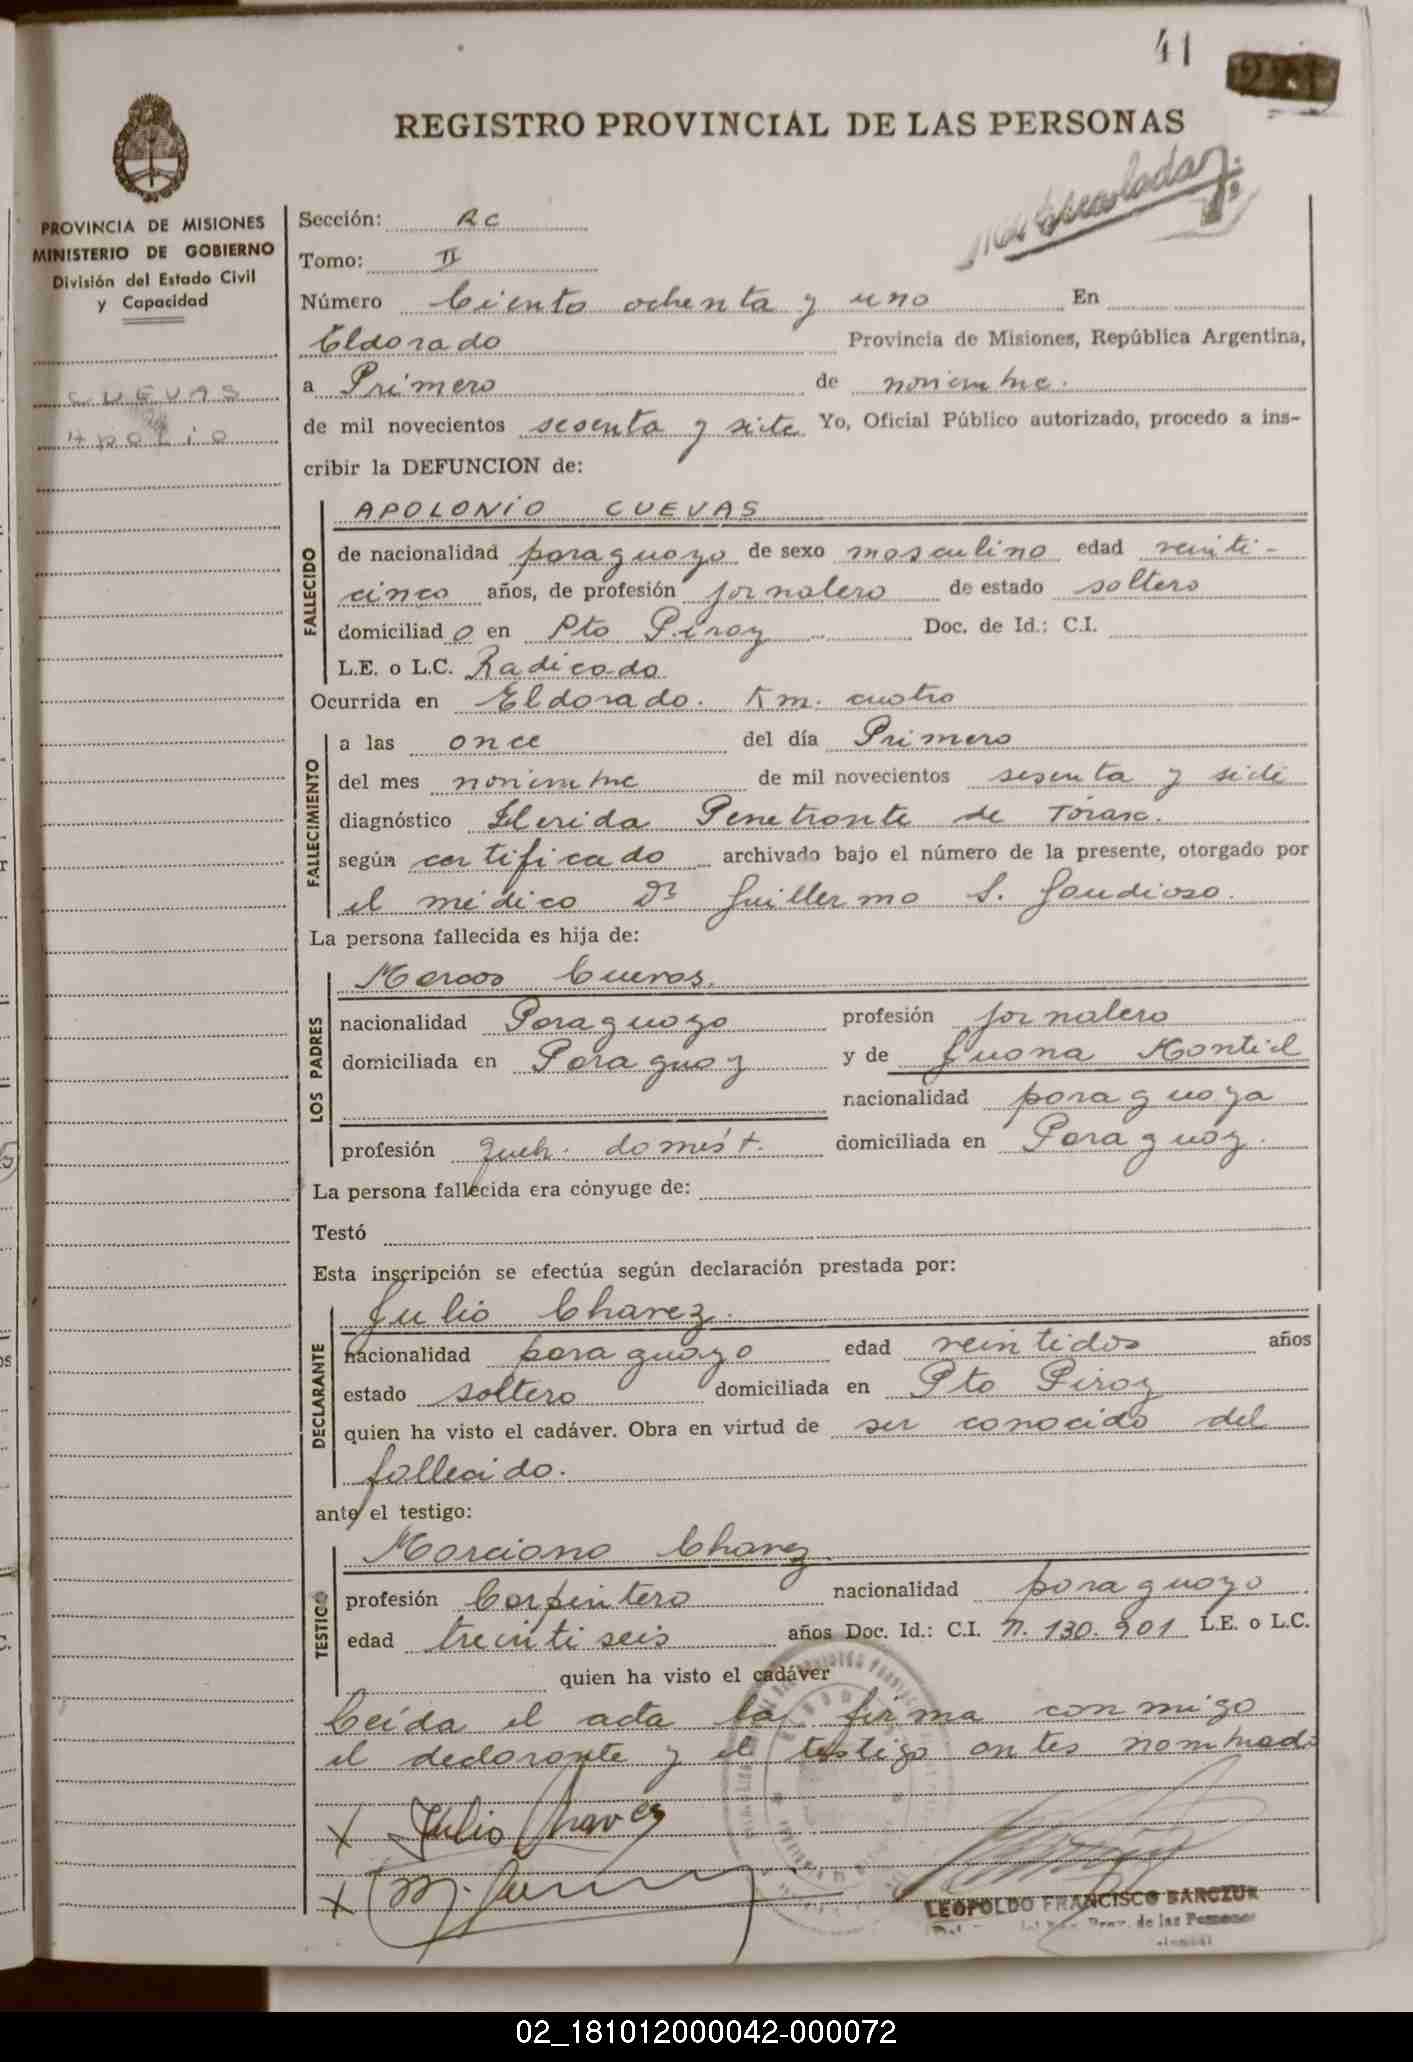 41
REGISTRO PROVINCIAL DE LAS PERSONAS
PROVINCIA DE MISIONES
MINISTERIO DE GOBIERNO
División del Estado Civil
y Capacidad
CUEVAS
Apolio
Sección: RC
Tomo: II
Número Ciento ochenta y uno En
Eldorado Provincia de Misiones, República Argentina,
a Primero de noviembre.
de mil novecientos sesenta y siete Yo, Oficial Público autorizado, procedo a ins-
cribir la DEFUNCION de:
FALLECIDO
APOLONIO CUEVAS
de nacionalidad paraguayo de sexo masculino edad veinti-
cinco años, de profesión jornalero de estado soltero
domiciliado en Pto Piray Doc. de Id.: C.I.
L.E. o L.C. Radicado
Ocurrida en Eldorado. Km. cuatro
FALLECIMIENTO
a las once del día Primero
del mes noviembre de mil novecientos sesenta y siete
diagnóstico Herida Penetrante de Tórax.
según certificado archivado bajo el número de la presente, otorgado por
el médico Dr Guillermo S. Gaudioso.
La persona fallecida es hija de:
LOS PADRES
Marcos Cuevas.
nacionalidad Paraguayo profesión jornalero
domiciliada en Paraguay y de Juana Montiel
nacionalidad paraguaya
profesión queh. domést. domiciliada en Paraguay.
La persona fallecida era cónyuge de:
Testó
Esta inscripción se efectúa según declaración prestada por:
DECLARANTE
Julio Chavez.
nacionalidad paraguayo edad veintidos años
estado soltero domiciliada en Pto Piray
quien ha visto el cadáver. Obra en virtud de ser conocido del
fallecido.
ante el testigo:
TESTIGO
Marciano Chavez
profesión Carpintero nacionalidad paraguayo.
edad treinti seis años Doc. Id.: C.I. N. 130.901 L.E. o L.C.
quien ha visto el cadáver
Leída el acta la firma conmigo
el declarante y el testigo antes nombrado
X Julio Chavez
X M.
LEOPOLDO FRANCISCO BARCZUK
Prov. de las Personas
02_181012000042-000072